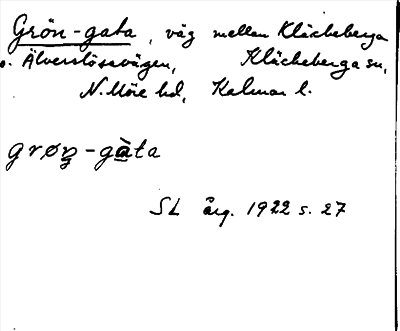 Grön-gata, väg mellan Kläckeberga
o. Älverslösavägen, Kläckeberga sn,
N. Möre hd, Kalmar l.
grøn-gàta
SL årg. 1922 s. 27